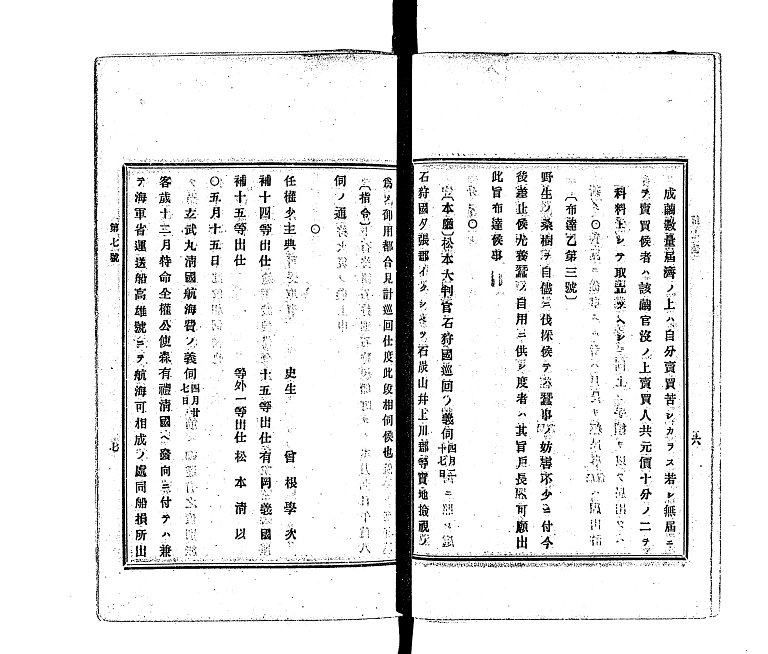 成繭數量屆濟ノ上ハ自分賣買苦シカラス若シ無屆ニ
テ賣買候者ハ該繭官沒ノ上賣買人共元價十分ノ二ヲ
科料トシテ取立ツヘシ
○
〔布達乙第三號〕
野生ノ桑樹ヲ自儘ニ伐採候テハ蠶事ノ妨害不少ニ付今
後差止候尤養蠶ノ自用ニ供シ度者ハ其旨戶長ヘ可願出
此旨布達候事
○
〔本廳〕松本大判官石狩國巡回ノ義伺 四月二十七日
石狩國夕張郡 石炭山并上川郡等實地撿視
爲メ御用都合見計巡回仕度此段相伺候也
〔指令〕
伺ノ通
○
任權少主典 史生 曾根學次
補十四等出仕 十五等出仕 有岡義國
補十五等出仕 等外一等出仕 松本清以
○五月十五日
玄武丸清國航海費ノ義伺 四月廿七日
客歲十二月特命全權公使森有禮清國ヘ發向ニ付テハ兼
テ海軍省運送船高雄號ニテ航海可相成ノ處同船損所出
第七號
七
六